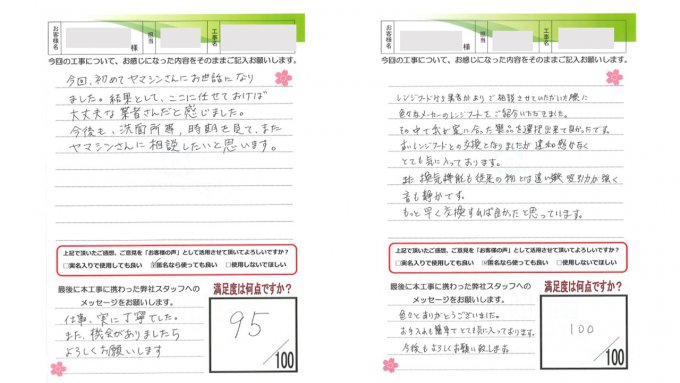 お客様名
様
担当
工事名
今回の工事について、お感じになった内容をそのままご記入お願いします。
今回、初めてヤマシンさんにお世話になり
ました。結果として、ここに任せておけば
大丈夫な業者さんだと感じました。
今後も、洗面所等、時期を見て、また
ヤマシンさんに相談したいと思います。
上記で頂いたご感想、ご意見を「お客様の声」として活用させて頂いてよろしいですか?
□実名入りで使用しても良い ☑匿名なら使っても良い □使用しないでほしい
最後に本工事に携わった弊社スタッフへの
メッセージをお願いします。
仕事、実に丁寧でした。
また、機会がありましたら
よろしくお願いします
満足度は何点ですか?
95
/100
お客様名
様
担当
工事名
今回の工事について、お感じになった内容をそのままご記入お願いします。
レンジフード付き
で相談させていただいた際に
色々なメーカーのレンジフードをご紹介いただきました。
その中で我が家に合った製品を選択出来て良かったです。
古いレンジフードとの交換となりましたが違和感がなく
とても気に入っております。
又 換気機能も従来の物とは違い 吸引力が強く
音も静かです。
もっと早く交換すれば良かったと思っています。
上記で頂いたご感想、ご意見を「お客様の声」として活用させて頂いてよろしいですか?
□実名入りで使用しても良い ☑匿名なら使っても良い □使用しないでほしい
最後に本工事に携わった弊社スタッフへの
メッセージをお願いします。
色々とありがとうございました。
お手入れも簡単でとても気に入っております。
今後もよろしくお願い致します。
満足度は何点ですか?
100
/100